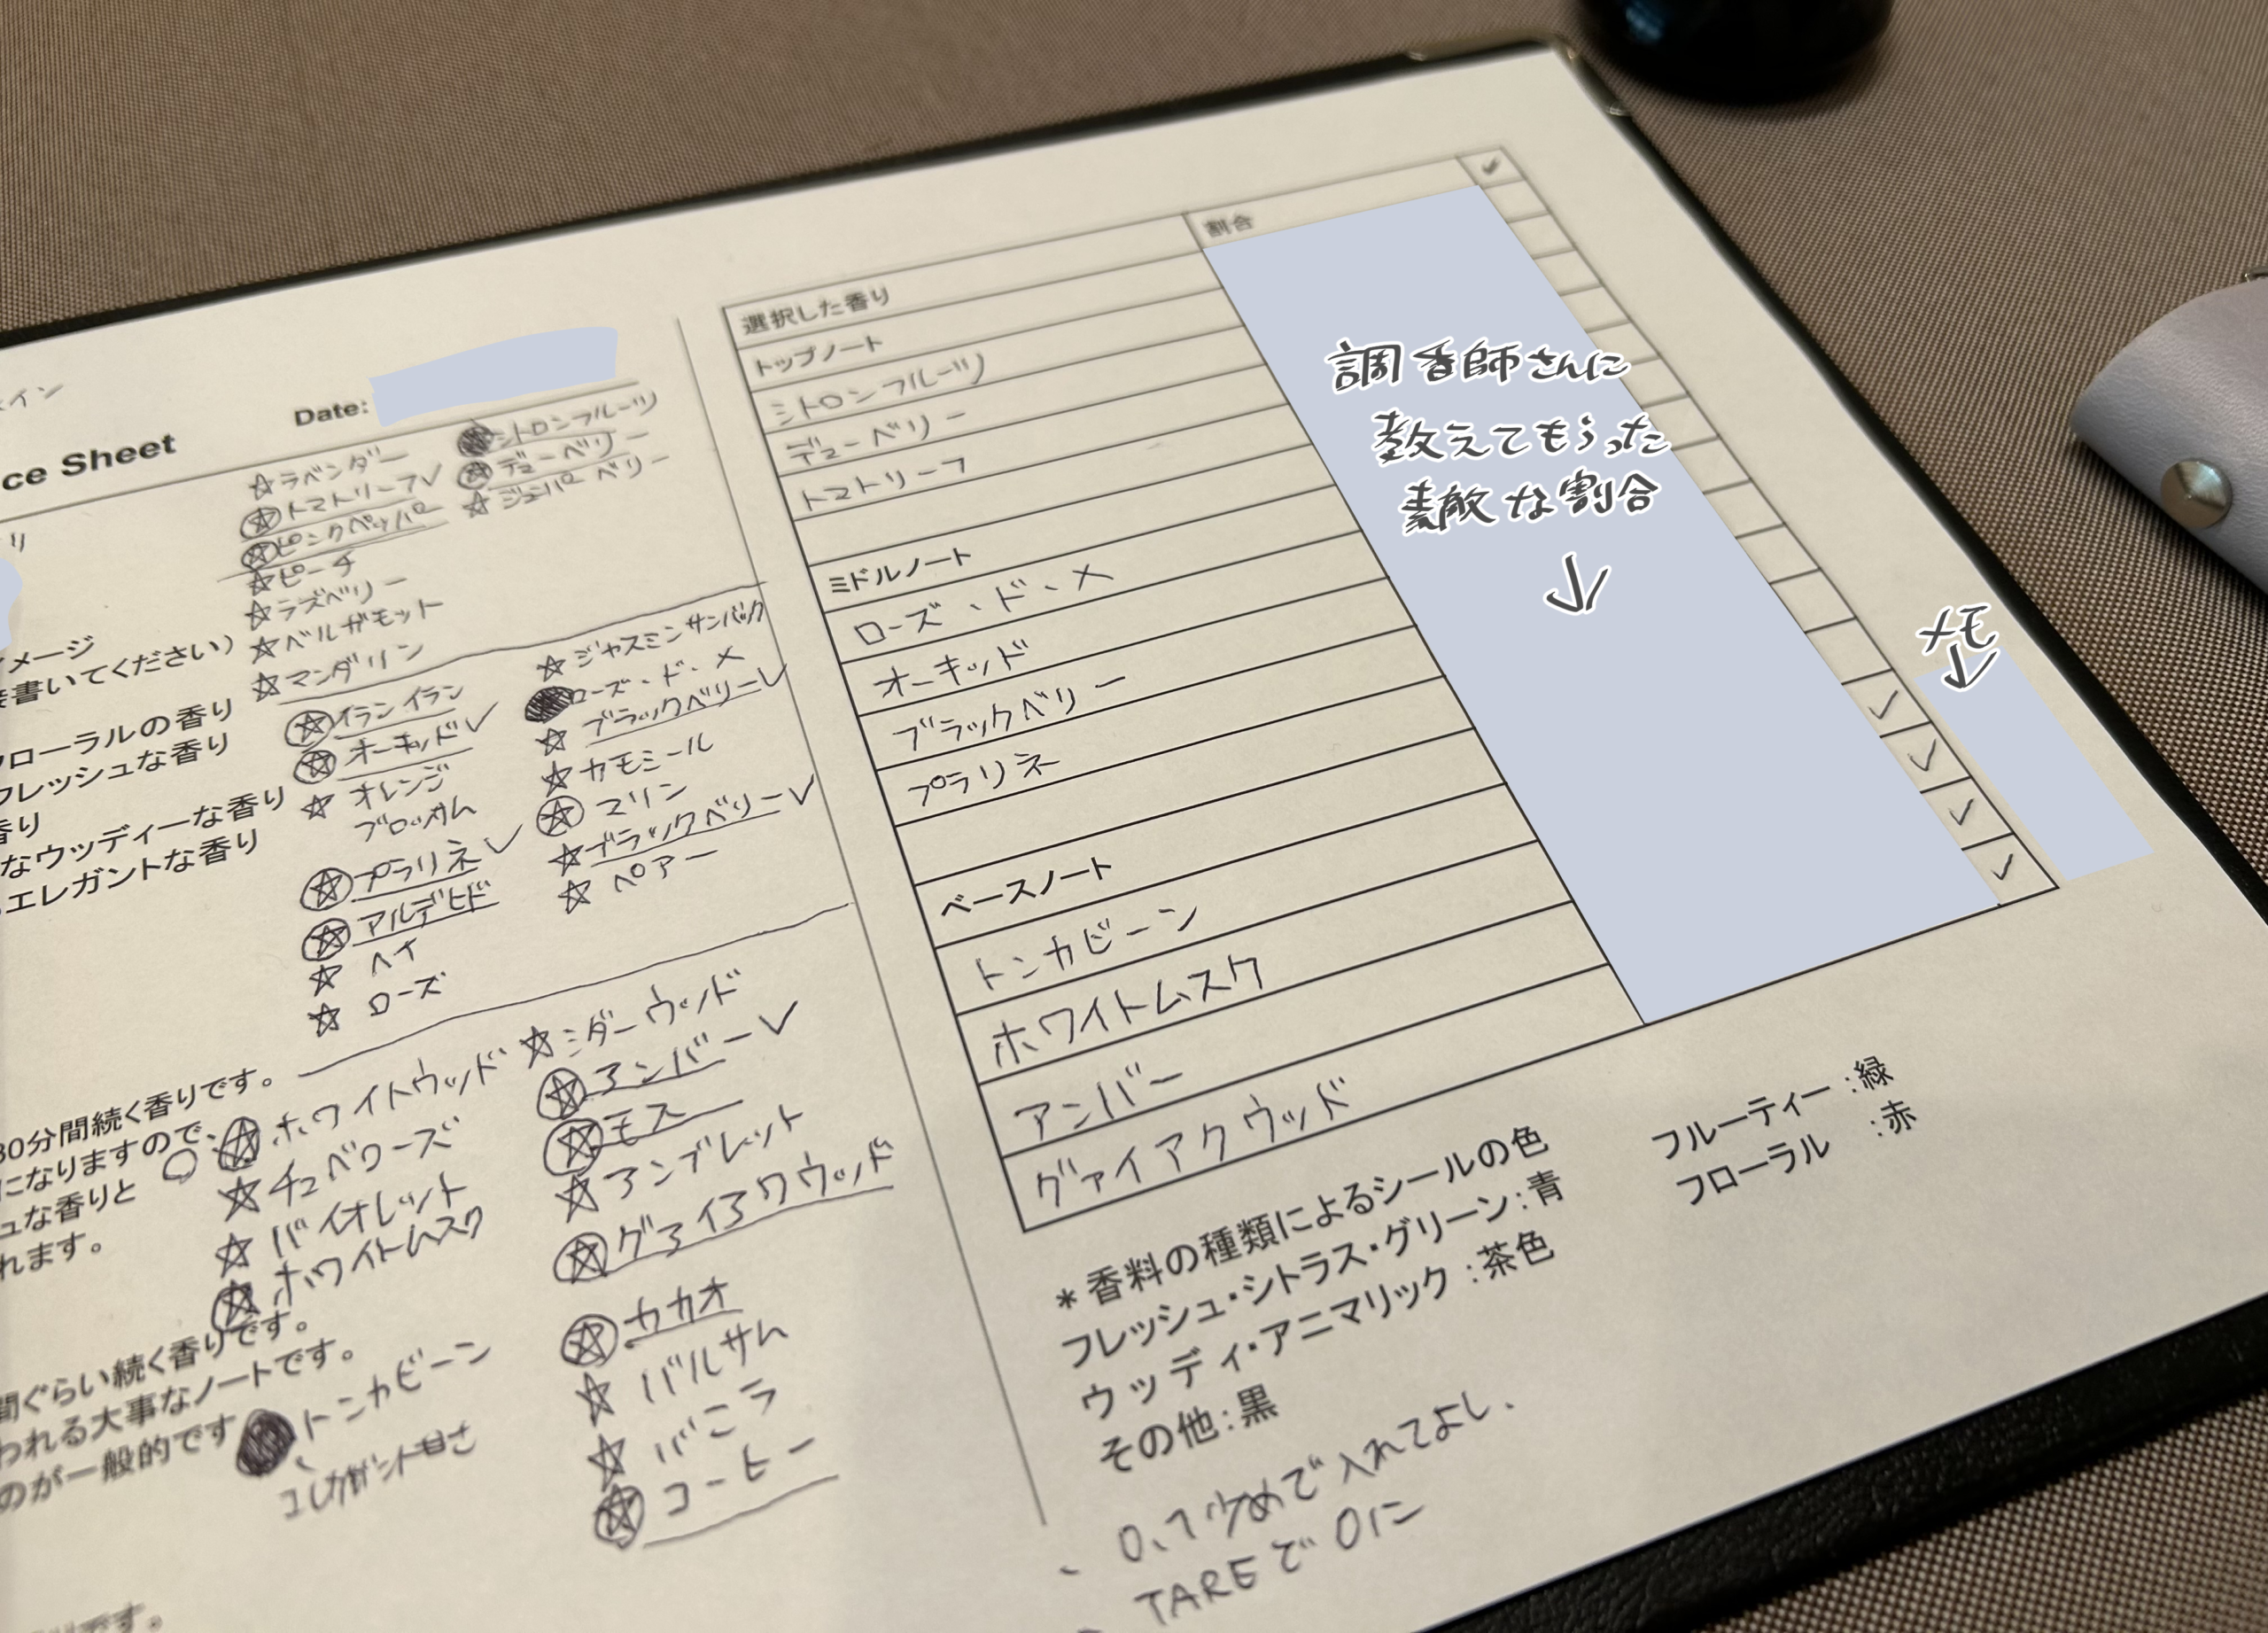 ce Sheet
Date:
★ラベンダー
★トマトリーフ✓
★ピンクペッパー
★ピーチ
★ラズベリー
★ベルガモット
★マンダリン
シトロンフルーツ
★デューベリー
★ジュニパーベリー
イメージ
書いてください)
フローラルの香り
フレッシュな香り
香り
なウッディーな香り
エレガントな香り
★イランイラン
★オーキッド✓
★オレンジ
ブロッサム
★プラリネ✓
★アルデヒド
★ヘイ
★ローズ
★ジャスミンサンバック
ローズ・ド・メ
★ブラックベリー✓
★カモミール
★マリン
★ブラックベリー✓
★ペアー
30分間続く香りです。
になりますので、
ュな香りと
れます。
★ホワイトウッド
★チュベローズ
★バイオレット
★ホワイトムスク
間ぐらい続く香りです。
われる大事なノートです。
のが一般的です
トンカビーン
エレガント甘さ
★シダーウッド
★アンバー✓
★モス
★アンブレット
★グァイアクウッド
★カカオ
★バルサム
★バニラ
★コーヒー
です。
選択した香り
割合
✓
トップノート
シトロンフルーツ
デューベリー
トマトリーフ
ミドルノート
ローズ・ド・メ
オーキッド
ブラックベリー
プラリネ
ベースノート
トンカビーン
✓
ホワイトムスク
✓
アンバー
✓
グァイアクウッド
✓
調香師さんに
教えてもらった
素敵な割合
↓
メモ
↓
*香料の種類によるシールの色
フレッシュ・シトラス・グリーン:青
ウッディ・アニマリック:茶色
その他:黒
フルーティー:緑
フローラル:赤
、0.1少めで入れてよし、
TAREで0に